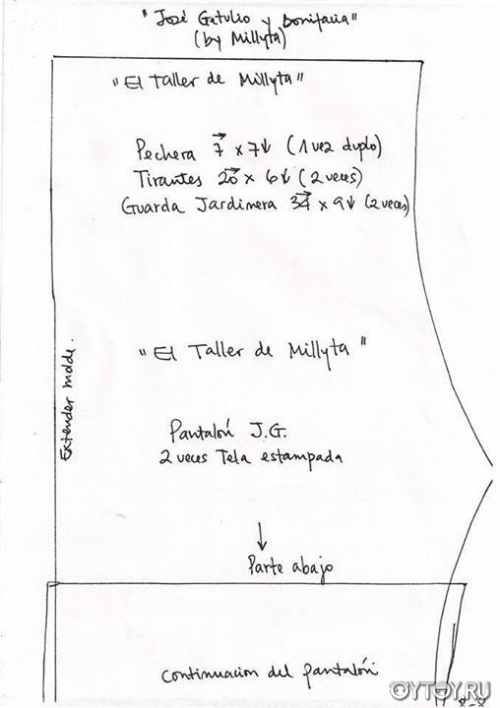 "José Getulio y Bonifacia"
(by Millyta)
"El Taller de Millyta"
Pechera 7→ x 7↓ (1 vez duplo)
Tirantes 20→ x 6↓ (2 veces)
Guarda Jardinera 34→ x 9↓ (2 veces)
Extender molde.
"El Taller de Millyta"
Pantalón J.G.
2 veces Tela estampada
↓
Parte abajo
continuacion del pantalón
OYTOY.RU